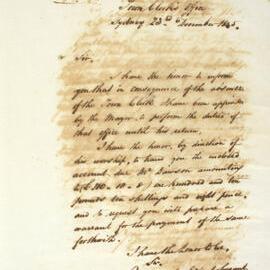 Town Clerk's Office
Sydney 23d December 1845.
Sir,
I have the honor to inform
you that in consequence of the absence
of the Town Clerk I have been appointed
by the Mayor to perform the duties of
that office until his return.
I have the honor, by direction of
his worship, to hand you the enclosed
account due Mr Dawson amounting
to £ 110. 10. 8 / one hundred and ten
pounds ten shillings and eight pence /
and to request you will prepare a
warrant for the payment of the same
forthwith.
I have the honor to be,
Sir,